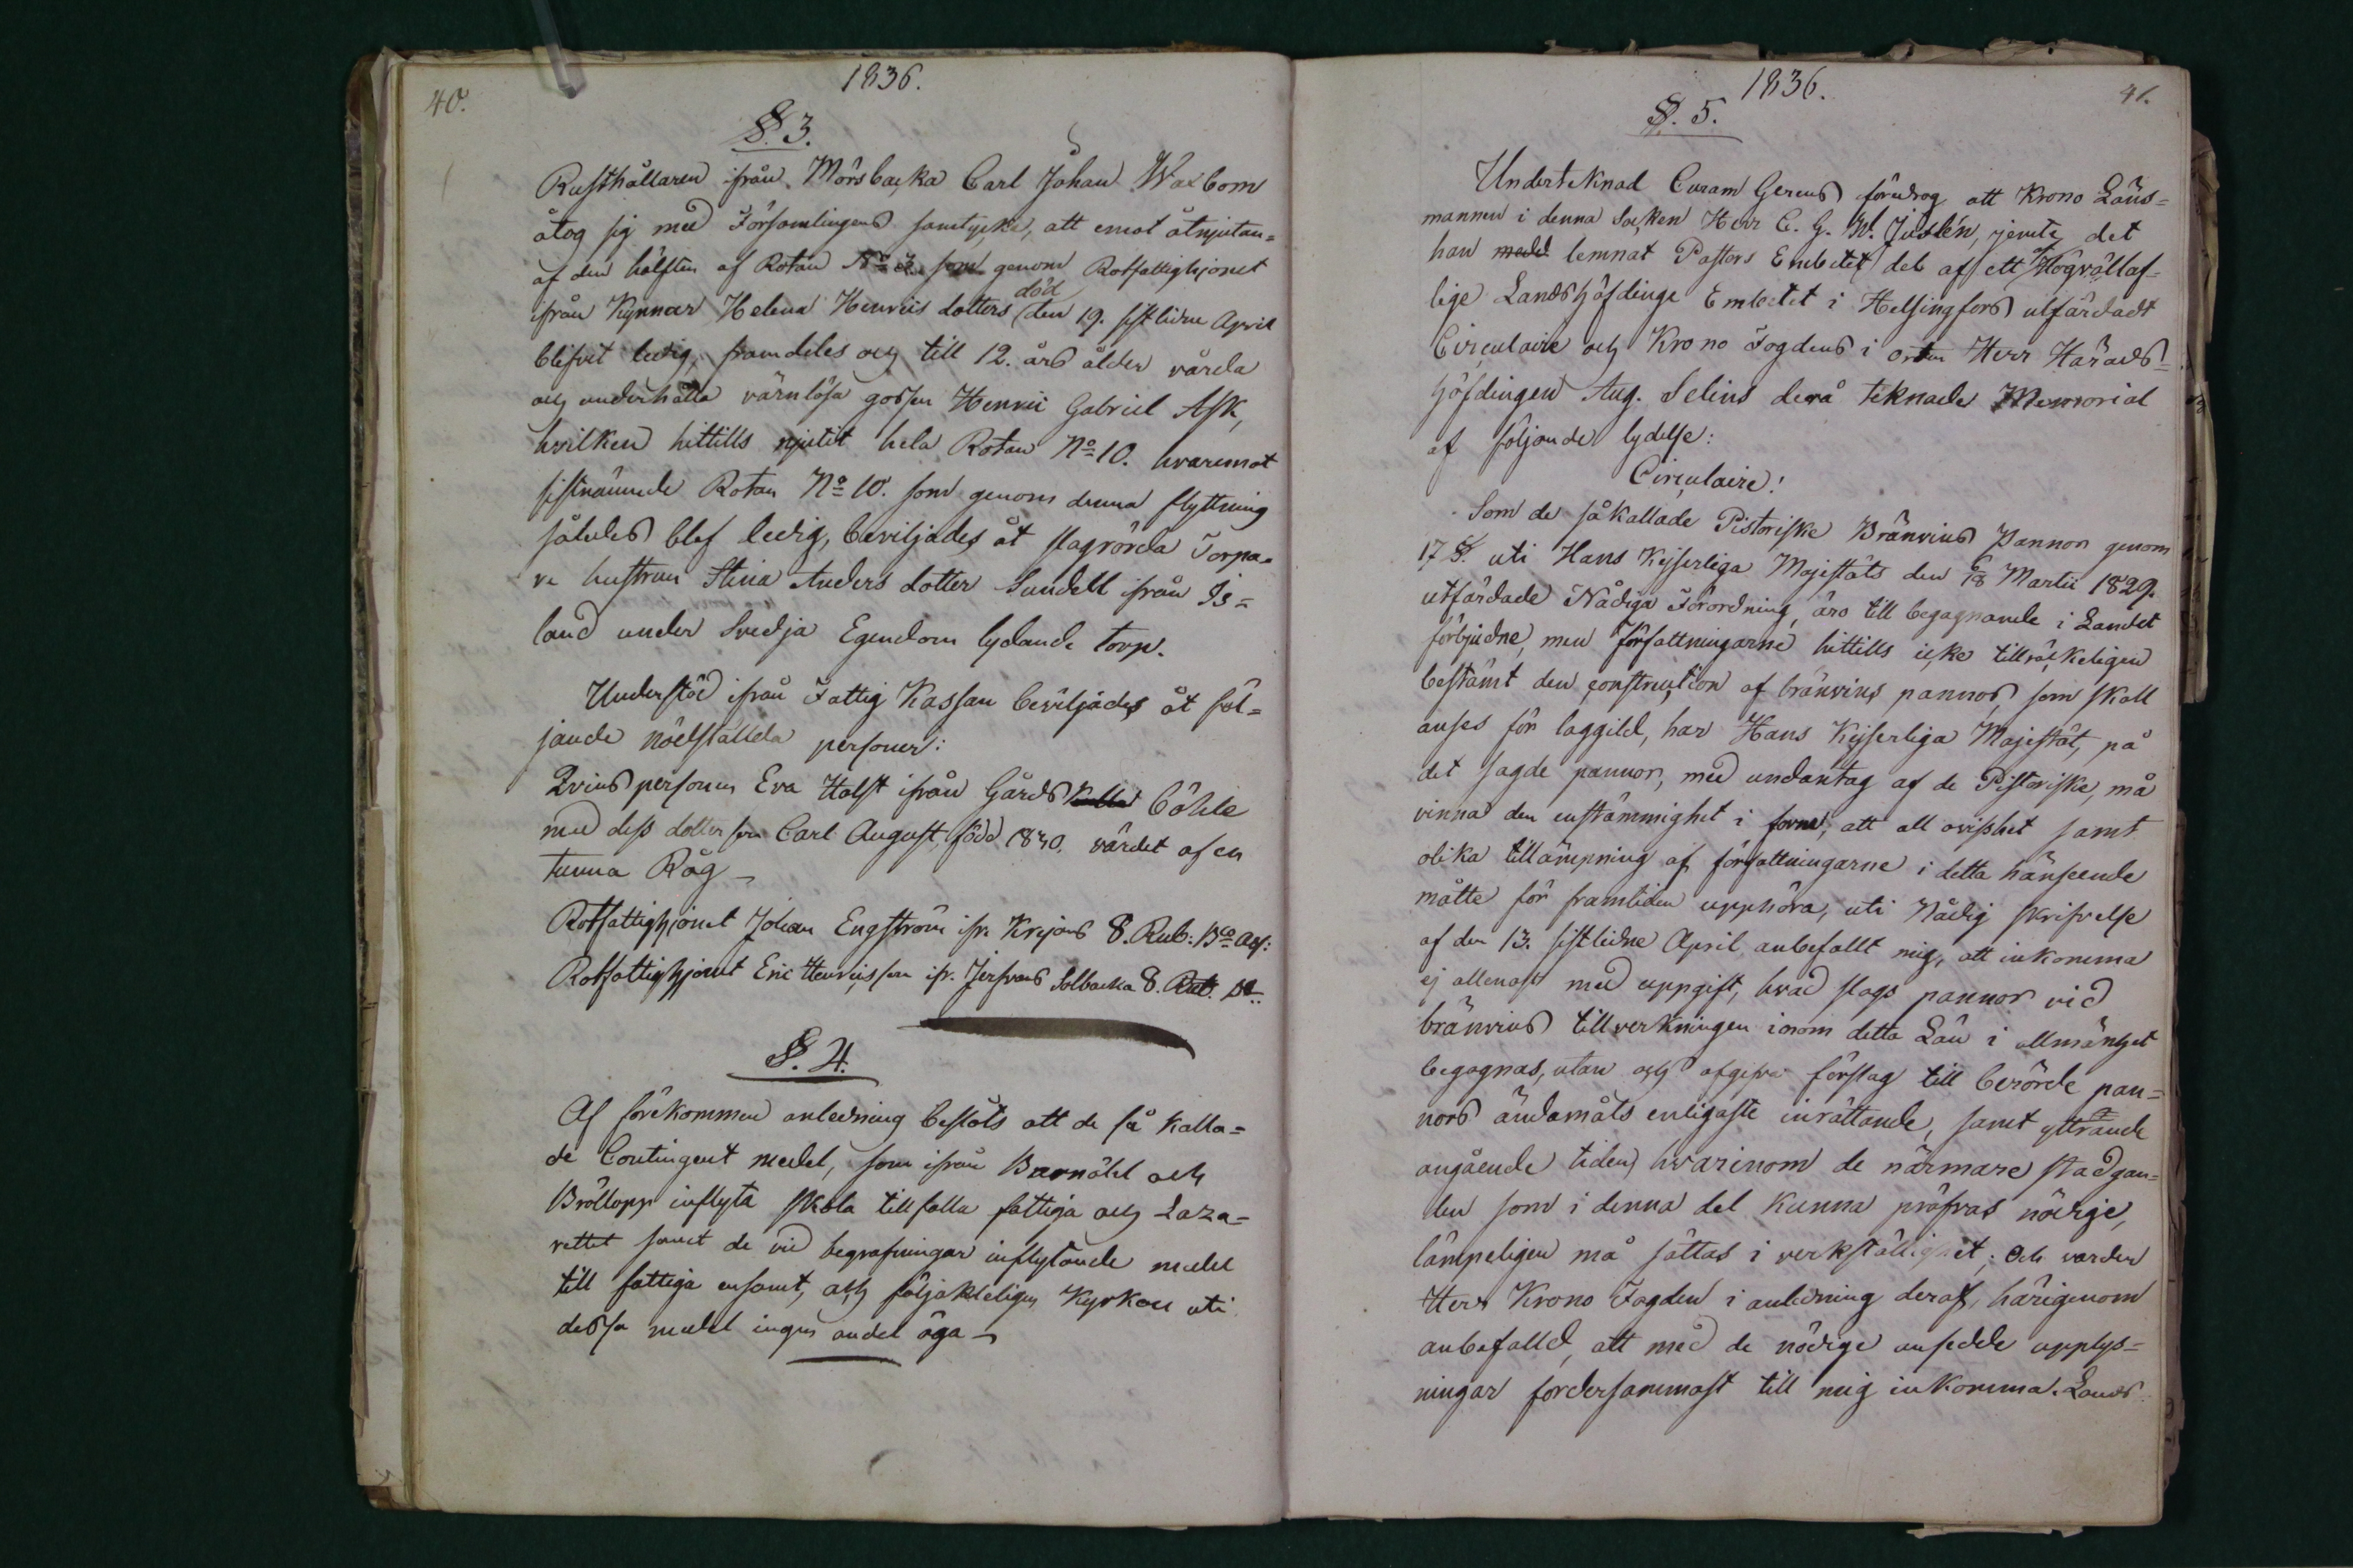 40.
1836.
§. 3.
Rusthållaren ifrån Mörsbacka Carl Johan Waxbom
åtog sig med Församlingens samtycke, att emot åtnjutan=
af den hälften af Rotan No 3. som genom Rotfattighjonet
ifrån Kynnar Helena Henrics dotters död den 19. sistledne April
blifvit ledig, framdeles och till 12. års ålder vårda
och underhålla värnlösa gossen Henric Gabriel Ask,
hvilken hittills njutit hela Rotan No 10. hvaremot
sistnämnde Rotan No 10. som genom denna flyttning
således blef ledig, beviljades åt slagrörda Torpa=
re hustrun Stina Anders dotter Sundell ifrån Is=
land under Svedja Egendom lydande torp.
Understöd ifrån Fattig Kassan beviljades åt föl=
jande nödställda personer:
Qvinspersonen Eva Holst ifrån Gårds Böhle
med dess dotter son Carl August, född 1830. värdet af en
tunna Råg
Rotfattighjonet Johan Engström ifr. Krejans 8. Rub: Bco Ass:
Rotfattighjonet Eric Henricsson ifr. Jerfvans Solbacka 8. Rub.
§. 4.
Af förekommen anledning beslöts att de så kalla=
de Contingent medel, som ifrån Barnöhl och
Bröllopp inflyta skola tillfalla fattiga och Laza=
rettet samt de vid begrafningar inflytande medel
till fattiga ensamt, och följakteligen Kyrkan uti
dessa medel ingen andel äga
1836.
41.
§. 5.
Underteknad Curam Gerens föredrog att Krono Läns=
mannen i denna Socken Herr C. G. W. Juslén, jemte det
han medel lemnat Pastors Embetet det af ett Högvällof=
lige Landshöfdinge Embetet i Helsingfors utfärdadt
Circulaire och Krono Fogdens i orten Herr Härads=
höfdingen Aug. Selins derå teknade Memorial
af följande lydelse:
Circulaire!
Som de såkallade Pistoriske Bränvins Pannor genom
17 §. uti Hans Kejserliga Majestäts den 6/18 Martii 1829.
utfärdade Nådiga Förordning, äro till begagnande i Landet
förbjudne, men författningarne hittills icke tillräckeligen
bestämt den construction af bränvins pannor, som skall
anses för laggild, har Hans Kejserliga Majestät, på
det sagde pannor, med undantag af de Pistoriske, må
vinna den enstämmighet i form, att all ovisshet samt
olika tillämpning af författningarne i detta hänseende
måtte för framtiden upphöra, uti Nådig skrifvelse
af den 13. sistledne April anbefallt mig, att inkomma
ej allenast med uppgift, hvad slags pannor vid
bränvins tillverkningen inom detta Län i allmänhet
begagnas, utan och afgifva förslag till berörde pan=
nors ändamåls enligaste inrättande, samt yttrande
angående tiden, hvarinom de närmare stadgan=
den som i denna del kunna pröfvas nödige,
lämpeligen må sättas i verkställighet; Och varder
Herr Krono Fogden i anledning deraf, härigenom
anbefalld, att med de nödige ansedde upplys=
ningar fordersammast till mig inkomma. Lands